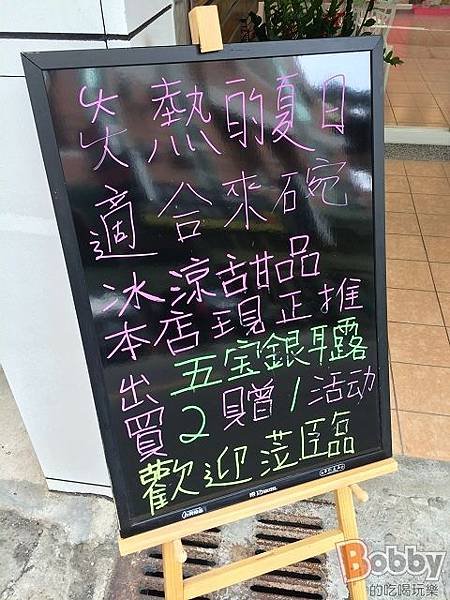 炎熱的夏日
適合來碗
冰涼甜品
本店現正推
出五宝銀耳露
買2贈1活动
歡迎蒞臨
Bobby
的吃喝玩樂